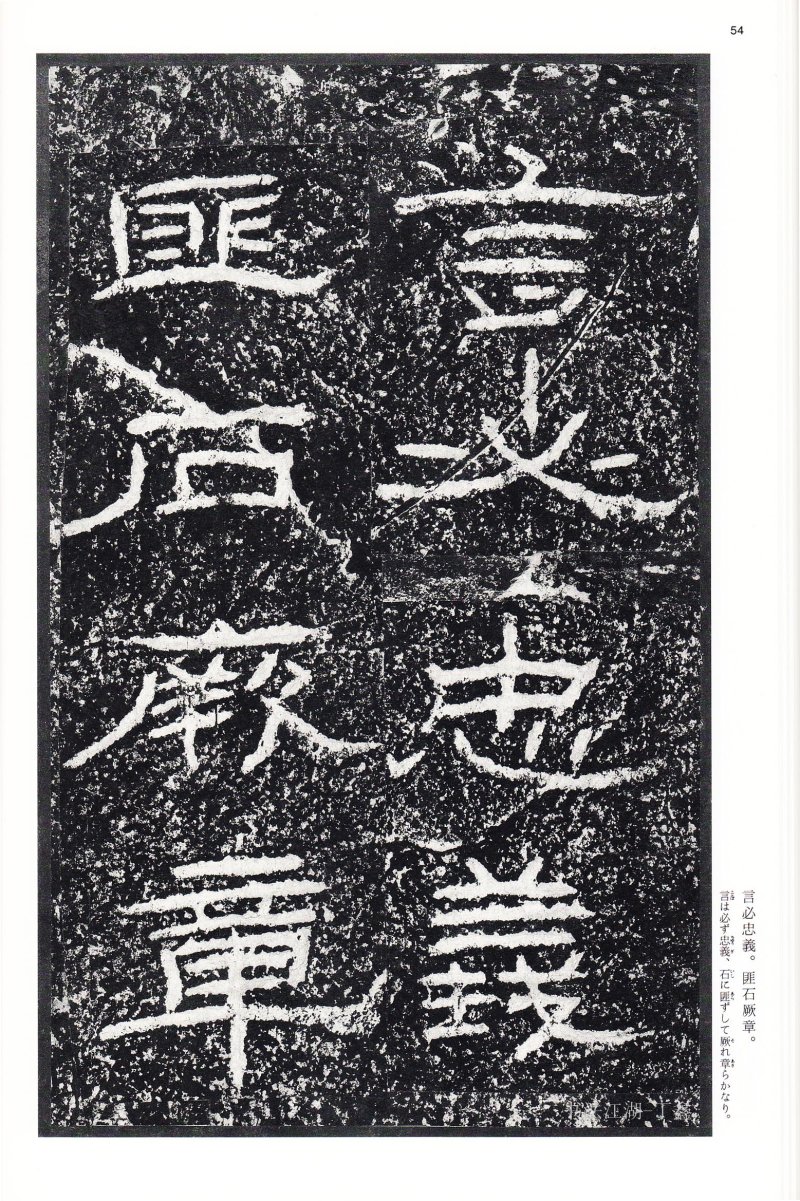 54
言必忠義
匪石厥章
言必忠義。匪石厥章。
言は必ず忠義、石に匪ずして厥れ章らかなり。